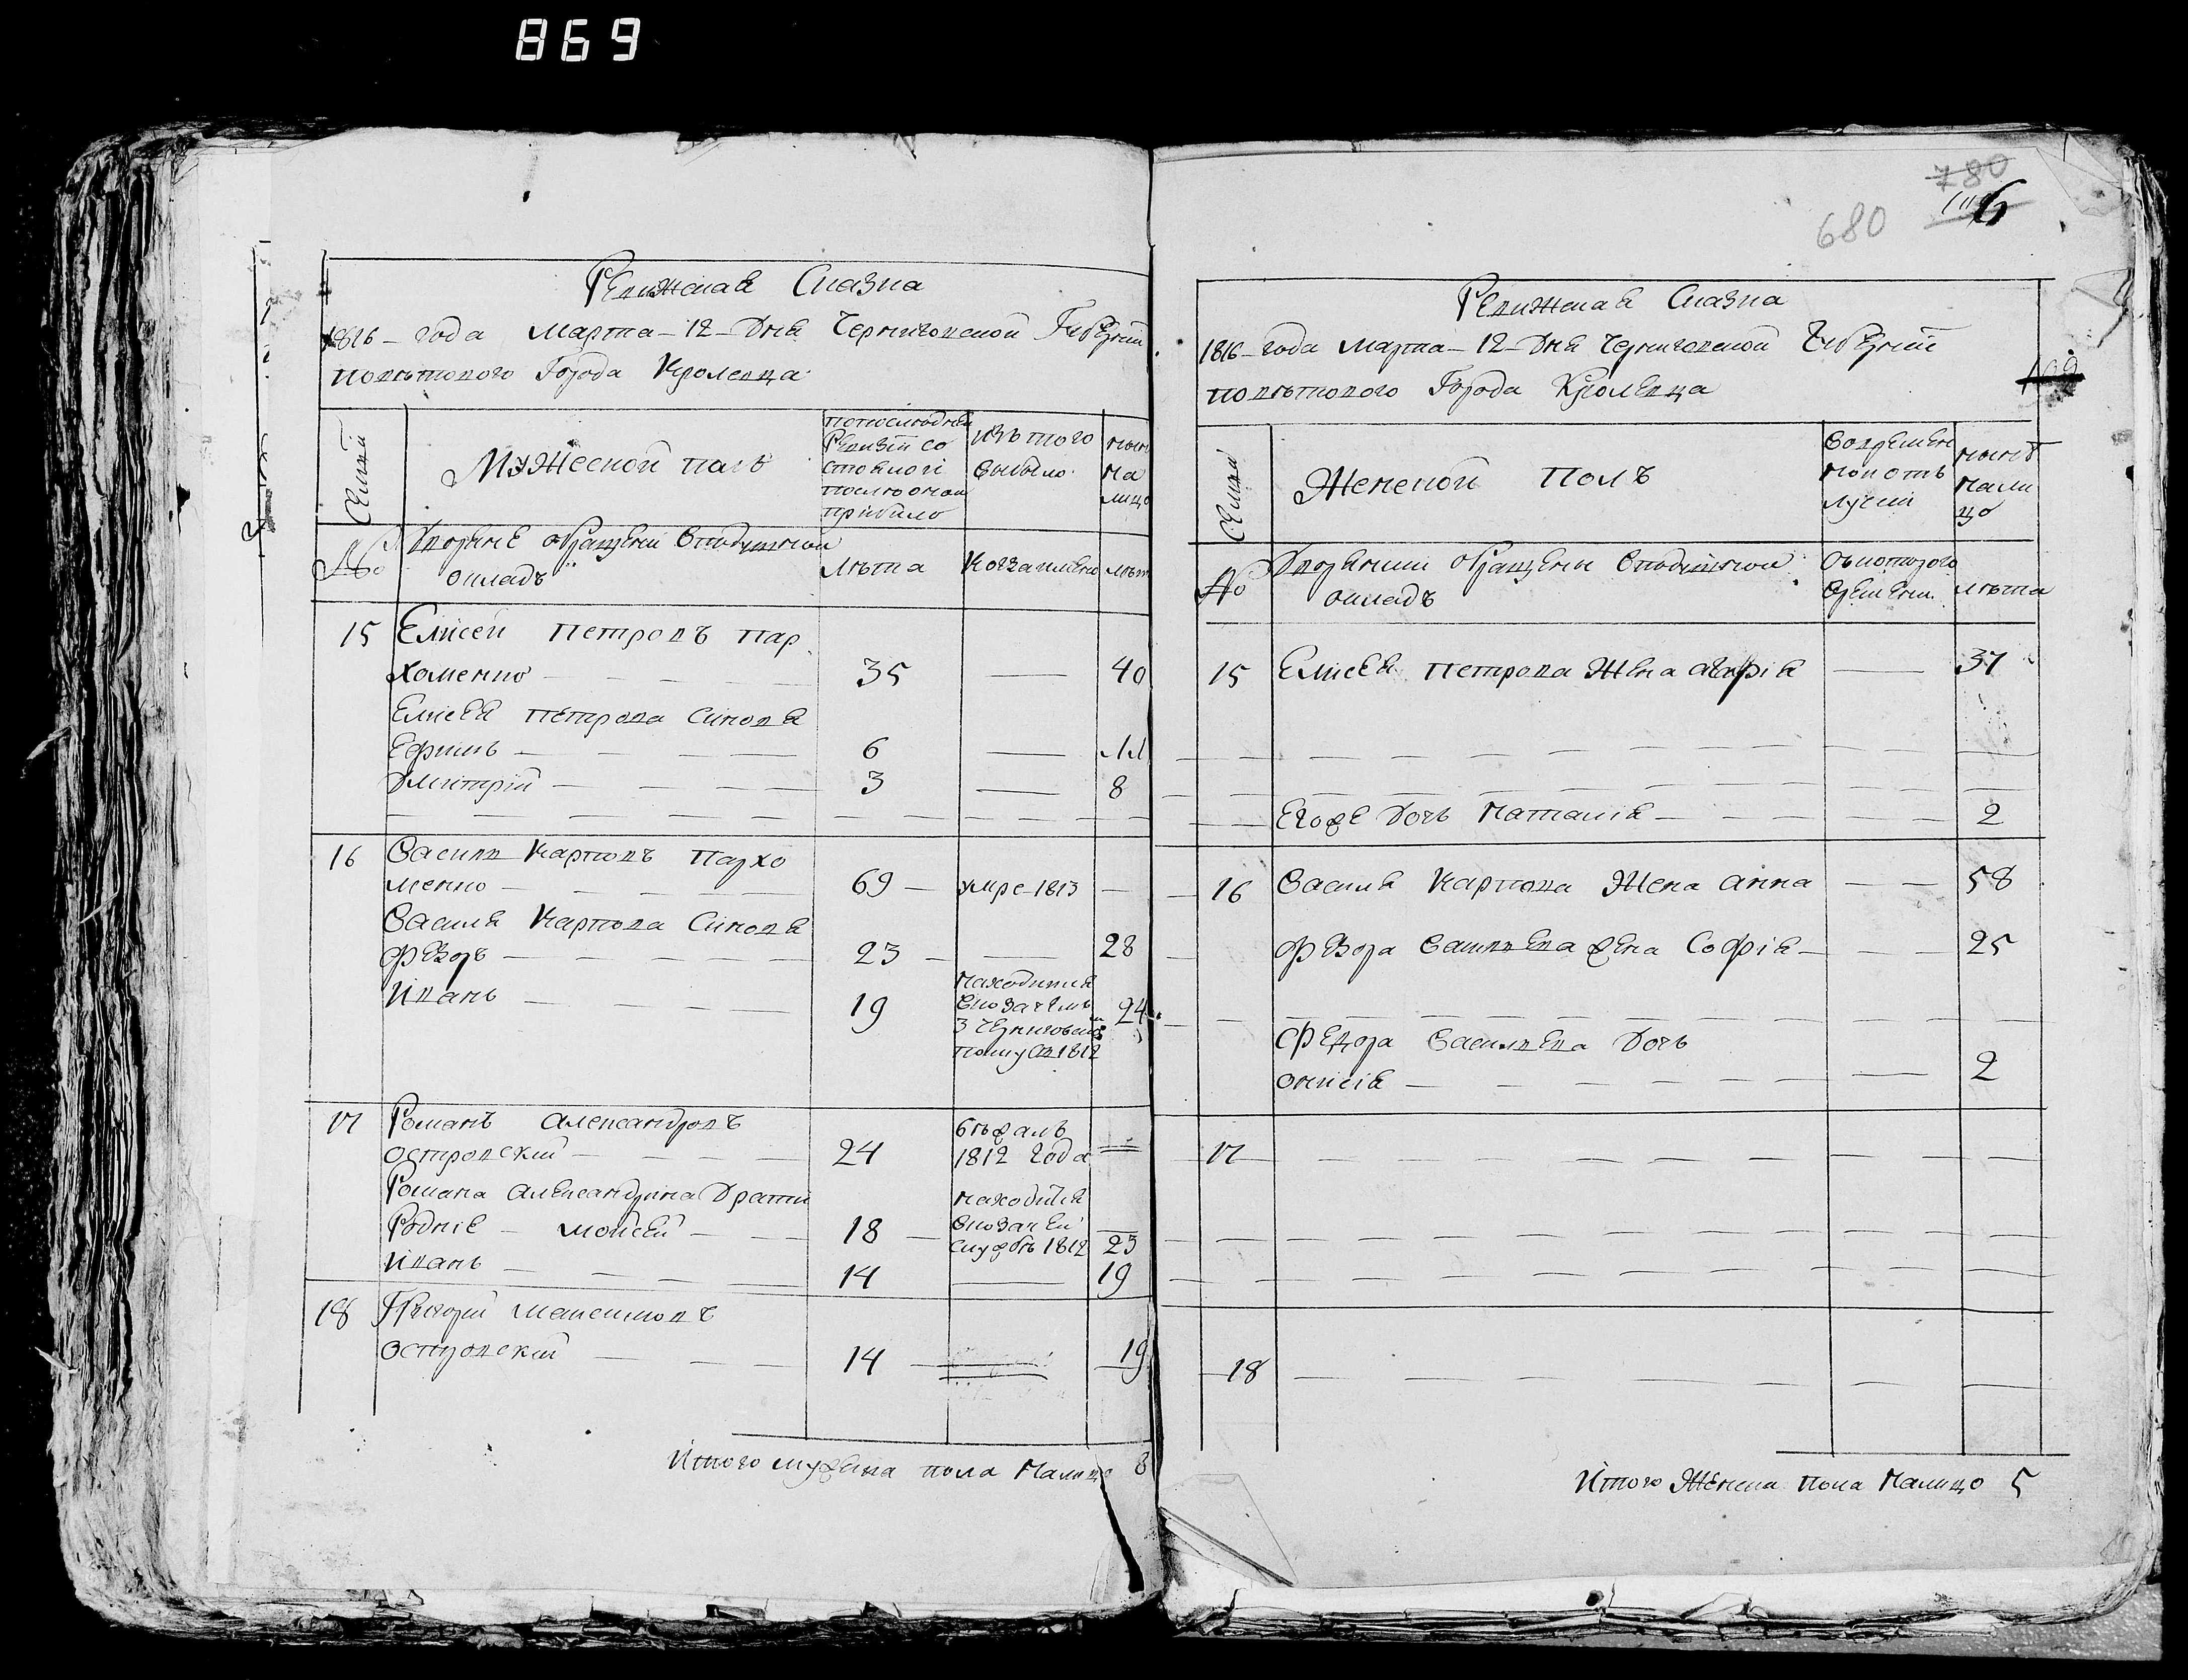 869
780
680
6
Ревижская Сказка
1816 года Марта 12 Дня Черниговской Губернии
повѣтового Города Кролевца
Семьи
Мужеской полъ
попоследней
Ревизии со
стояло и
после оной
прибыло
Изъ того
выбыло
нынѣ
на
лицо
№
Дворяне обращени вподушной
окладъ
Лѣта
Когда имено
лѣта
15
Елисей Петровъ Пар
хоменко
35
40
Елисея Петрова Синовя
Ефимъ
6
11
Дмитрій
3
8
16
Василь Карповъ Пархо
менко
69
умре 1813
Василя Карпова Синовя
Фёдоръ
23
28
Иванъ
19
находится
вкозачемъ
3 Чернигов
полку С 1812
24
17
Романъ Александровъ
Островский
24
бѣжалъ
1812 года
Романа Александрова Брати
Родніе Мойсей
18
находится
вкозачей
службѣ 1812
23
Иванъ
14
19
18
Григорій Максимовъ
Островский
14
19
Итого мужеска пола Налицо 8
Ревижская Сказка
1816 года Марта 12 Дня Черниговской Губернии
повѣтового Города Кролевца
Семьи
Женской Полъ
вовремен
ной отъ
лучки
нынѣ
нали
цо
№
Дворянки обращены вподушной
окладъ
Скоторого
времени
лѣта
15
Елисея Петрова Жена Агафія
37
Егоже Дочь Наталія
2
16
Василя Карпова Жена Анна
58
Фёдора Василева жена Софія
25
Федора Василева Дочь
Онисія
2
17
18
Итого Женска пола Налицо 5